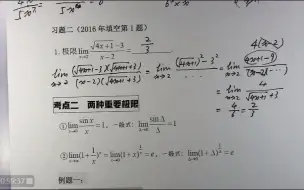 习题二（2016年填空第1题）
1. 极限 lim x→2 (√(4x+1) - 3)/(x - 2) = 2/3.
4(x-2)
= lim x→2 (√(4x+1) - 3)(√(4x+1) + 3)/(x-2)(√(4x+1) + 3) = lim x→2 (√(4x+1))² - 3² = lim x→2 4x+1-9/(x-2)(
= lim x→2 4/(√(4x+1) + 3)
= 4/6 = 2/3
考点二 两种重要极限
① lim x→0 sin x/x = 1，一般式：lim Δ→0 sin Δ/Δ = 1
② lim x→∞ (1 + 1/x)^x = lim x→0 (1 + x)^(1/x) = e，一般式：lim Δ→0 (1 + Δ)^(1/Δ) = e
例题一：